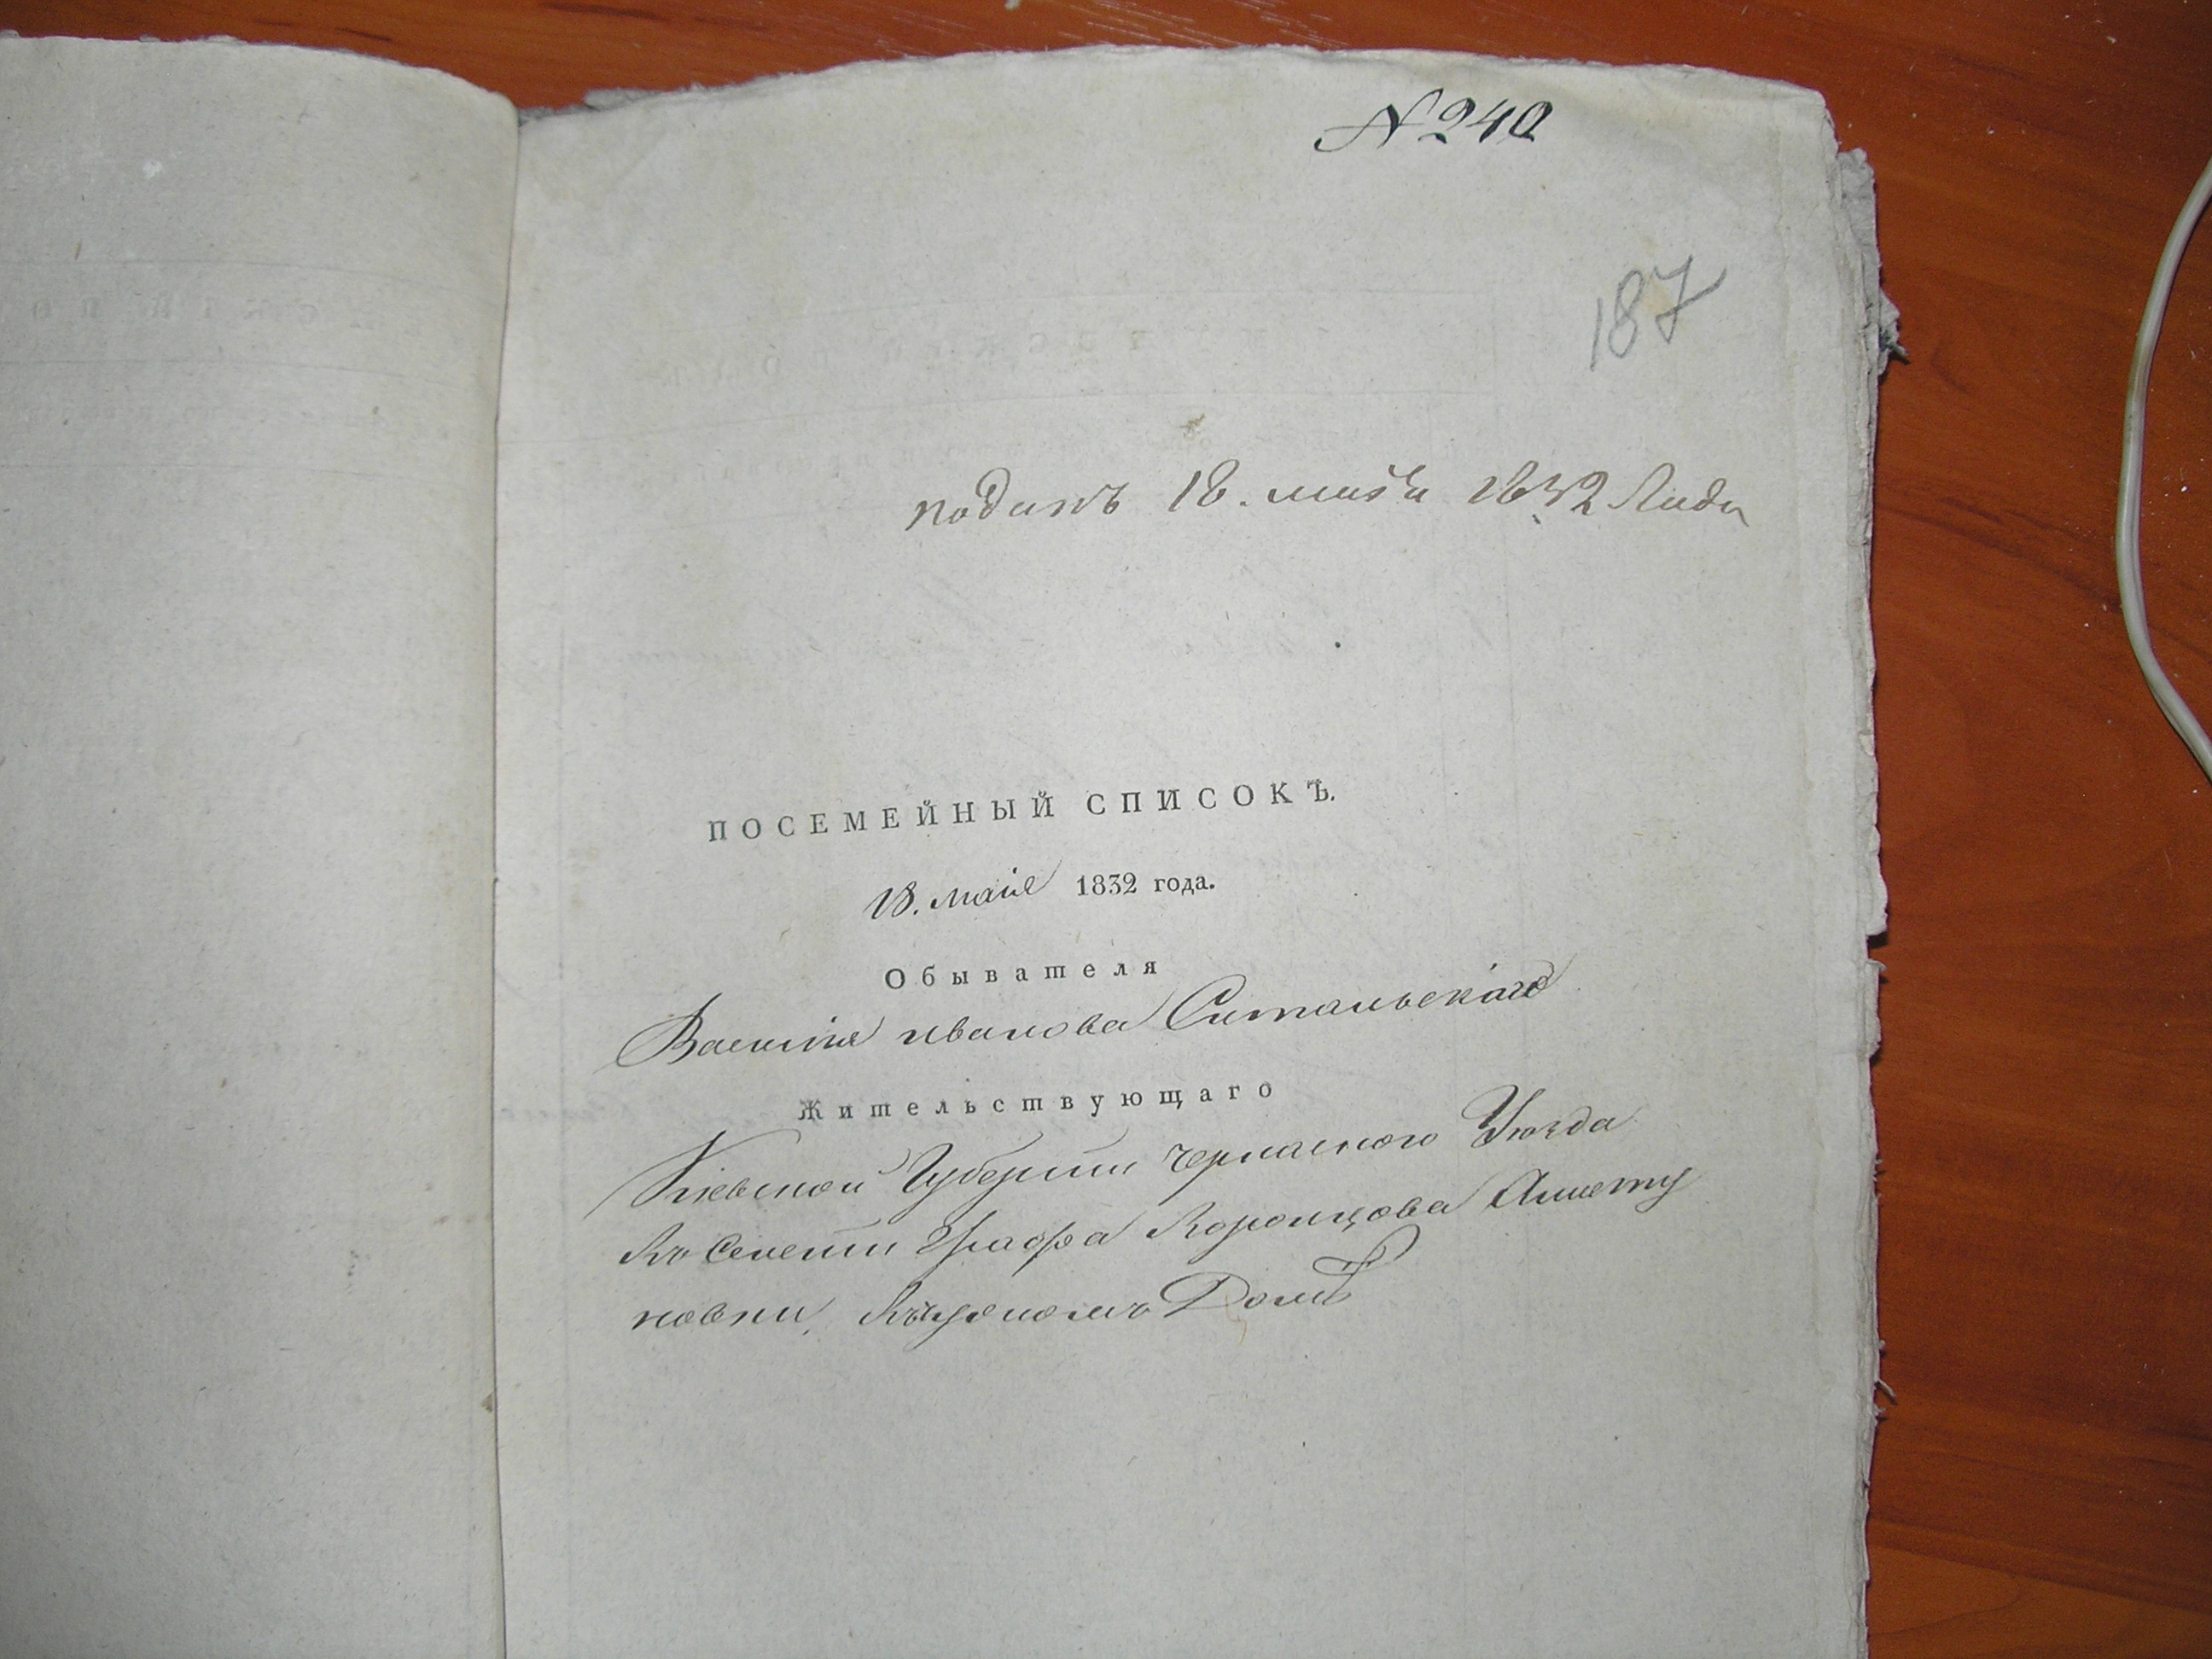 N 240
187
поданъ 18. маія 1832 Года
ПОСЕМЕЙНЫЙ СПИСОКЪ.
18. маія 1832 года.
Обывателя
Василія иванова Ситальскаго
Жительствующаго
Кіевской Губерніи Черкаского Уюзда
Въ Селеніи Графа Воронцова
Въчужомъ Домѣ